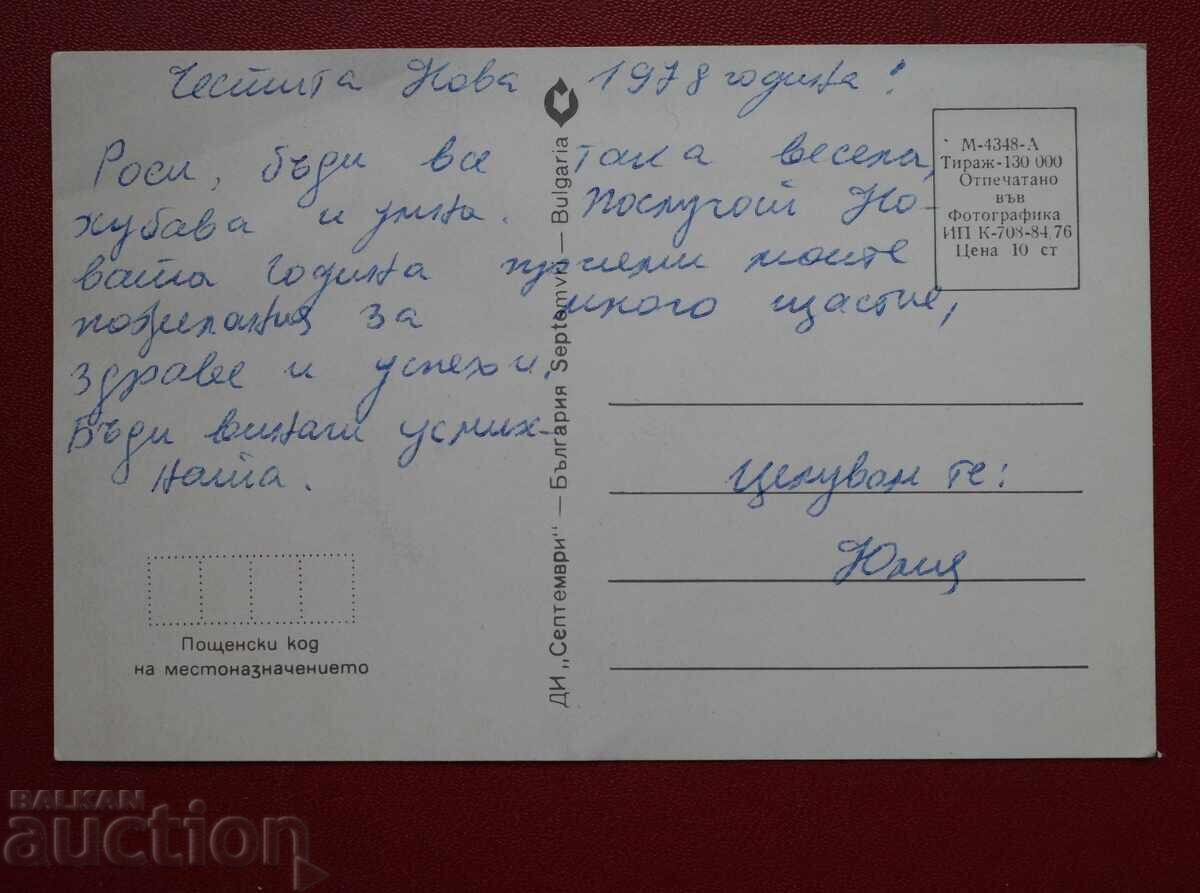 Честита Нова 1978 година!
Роси, бъди все така весела,
хубава и умна. Послучай Но-
вата година приеми моите
пожелания за много щастие,
здраве и успехи.
Бъди винаги усмих-
ната.
Целувам те:
Юлия
М-4348-А
Тираж-130 000
Отпечатано
във
Фотографика
ИП К-708-84,76
Цена 10 ст
ДИ „Септември" — България Septemvri — Bulgaria
Пощенски код
на местоназначението
BALKAN
auction